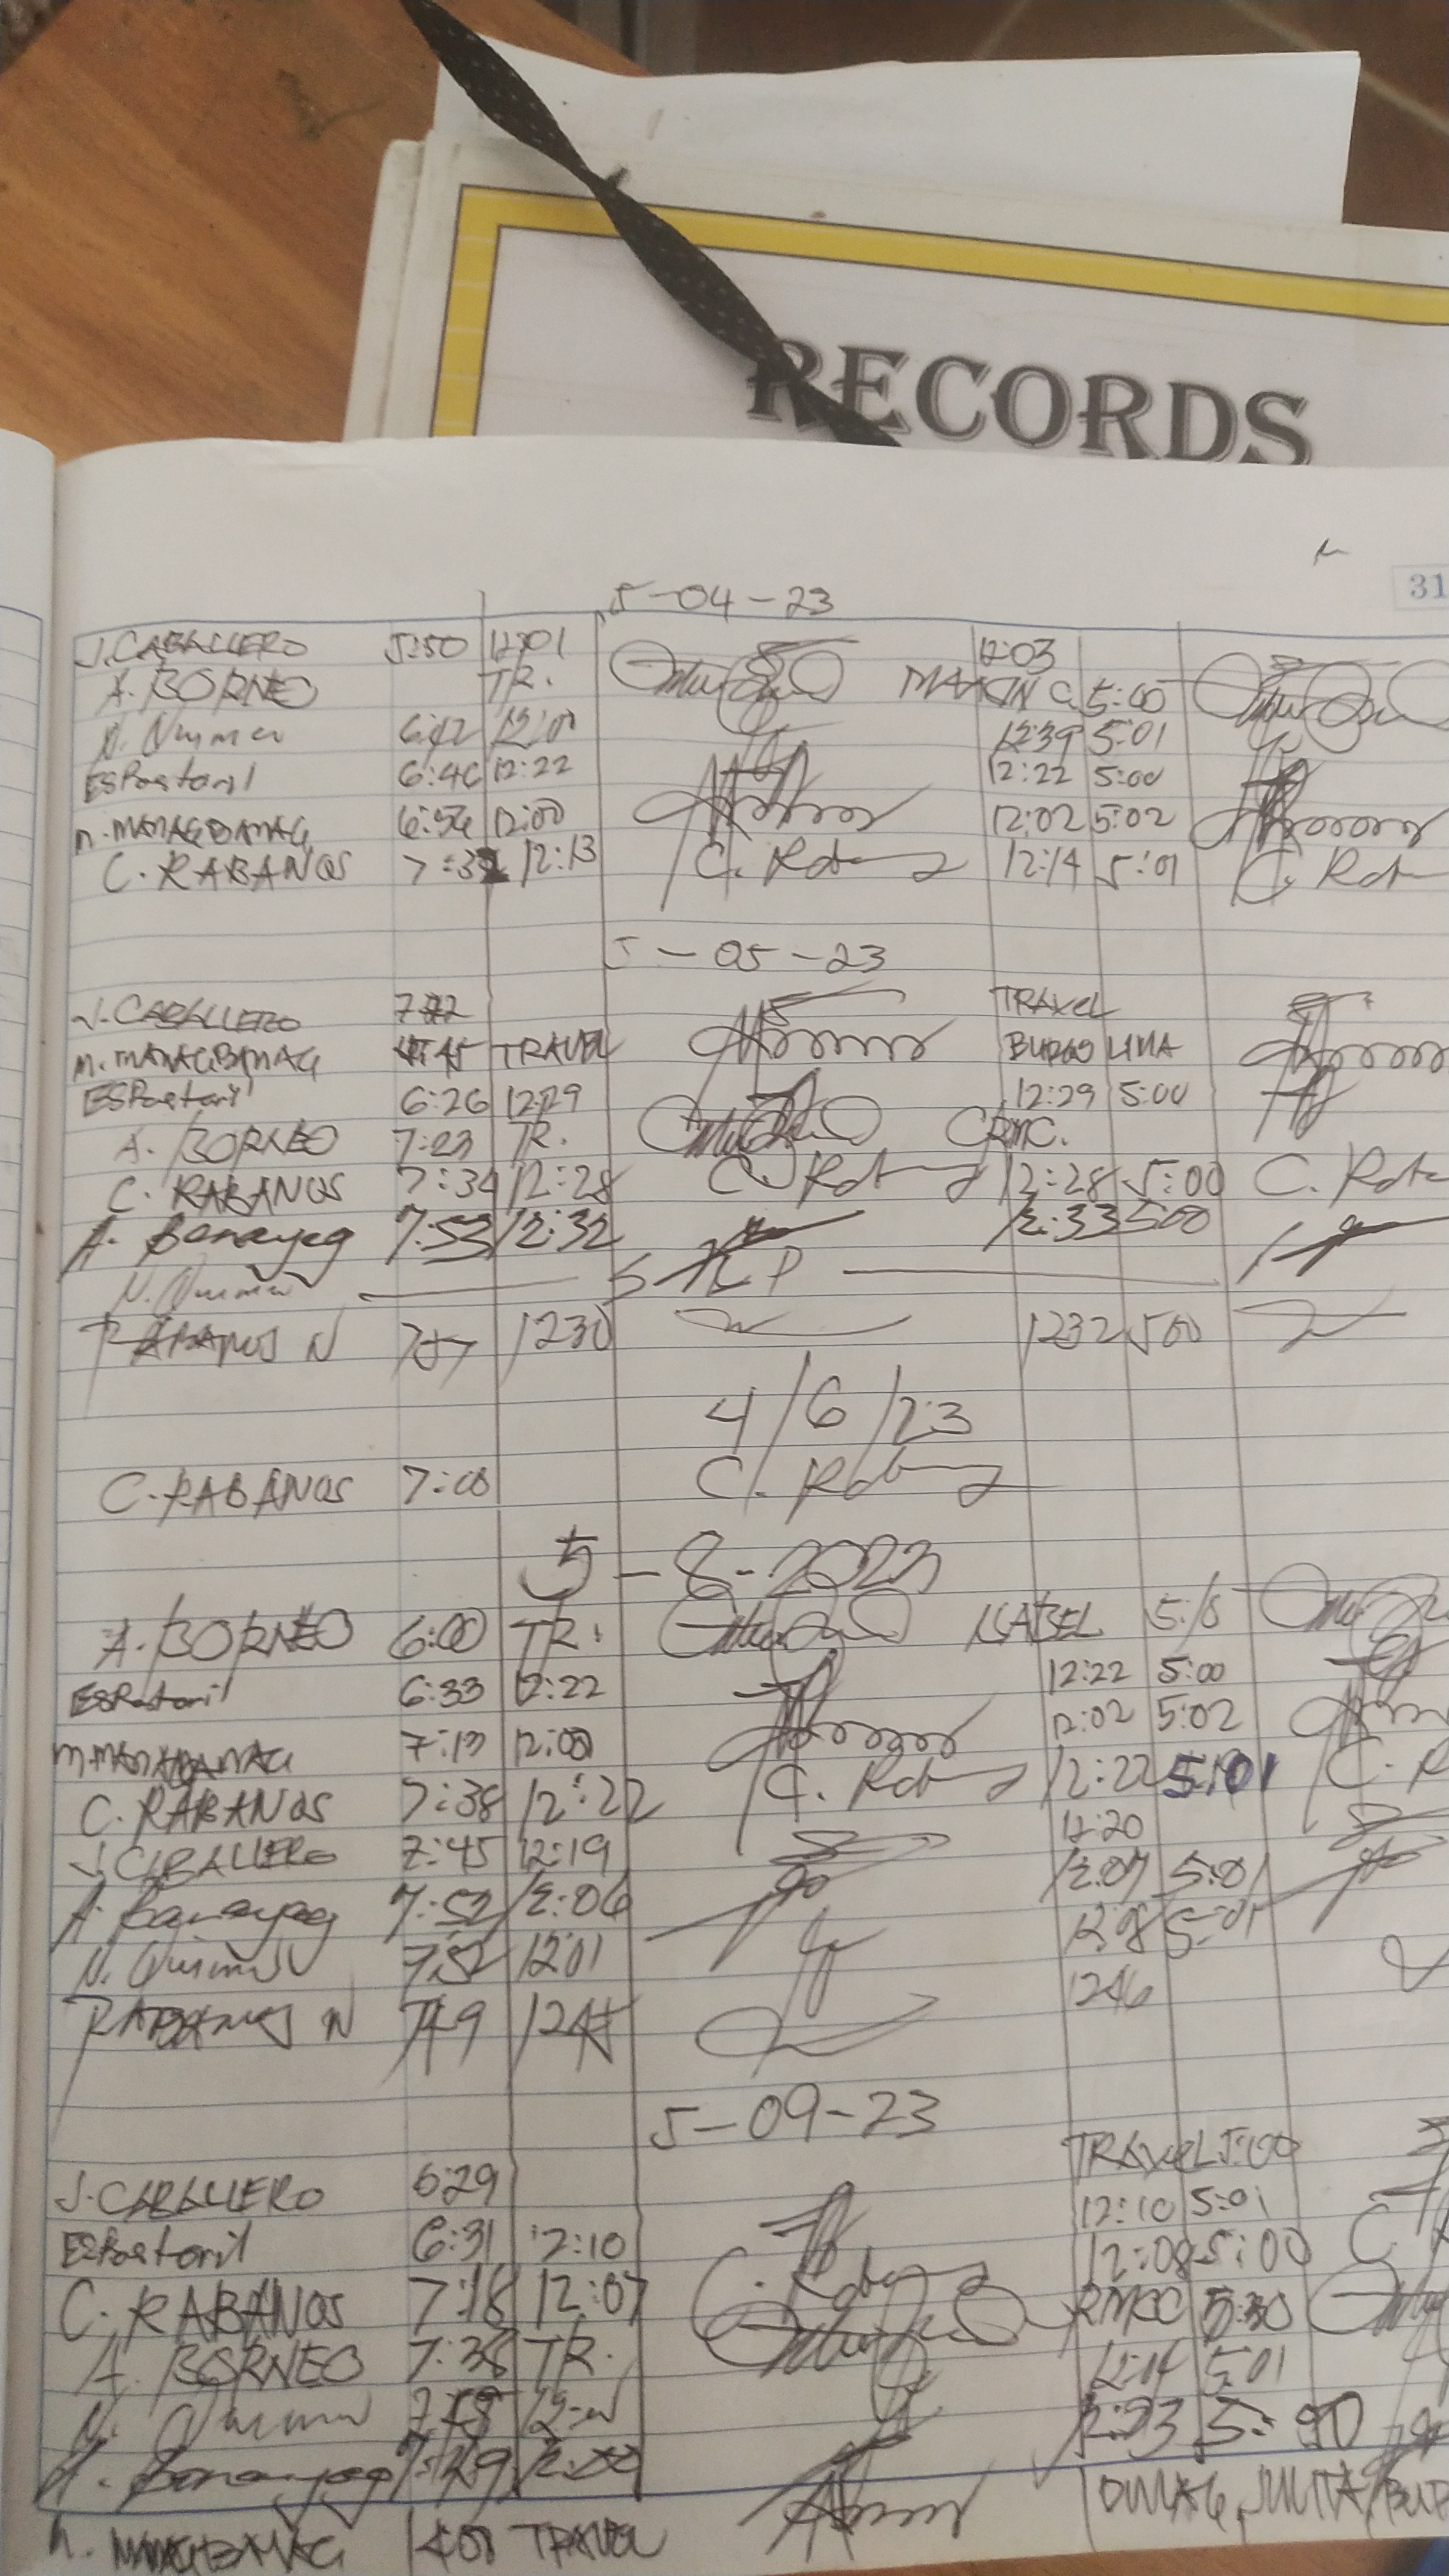 RECORDS
31
5-04-23
J. CABALLERO 5:50 12:01 12:03
A. BORNEO TR. MAASIN C. 5:00
12:39 5:01
ESPastoril 6:46 12:22 12:22 5:00
M. MANAGBANAG 6:56 12:00 12:02 5:02
C. RABANOS 12:13 C. Rab 12:14 5:01 C. Rab
5-05-23
J. CABALLERO TRAVEL
M. MANAGBANAG TRAVEL
ESPastoril 6:26 12:29 12:29 5:00
A. BORNEO 7:23 TR. CRMC.
C. RABANOS 7:34 12:28 C. Rab 12:28 5:00 C. Rab
A. Banayag 7:53 12:32 12:33 5:00
RABANOS N 757 1230 1232 500
4/6/23
C. RABANOS 7:00 C. Rab
5-8-2023
A. BORNEO 6:00 TR. ISABEL 5:15
ESPastoril 6:33 12:22 12:22 5:00
M. MANAGBANAG 7:13 12:00 12:02 5:02
C. RABANOS 7:38 12:22 C. Rab 12:22 5:01 C. R
J. CABALLERO 7:45 12:19 12:20
A. Banayag 7:52 12:06 12:07 5:01
7:52 12:01 12:08 5:01
RABANOS N 749 1245 1246
5-09-23
J. CABALLERO 6:29 TRAVEL 5:00
ESPastoril 6:31 12:10 12:10 5:01
C. RABANOS 7:18 12:07 C. Rab 12:08 5:00 C.
A. BORNEO 7:38 TR. 5:30
5:01
A. Banayag 7:49
M. MANAGBANAG TRAVEL